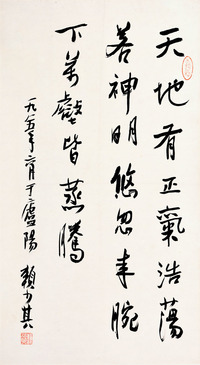 天地有正氣浩蕩
若神明悠忽来腕
下萬壑皆蒸騰
一九八五年六月于廬陽 賴少其